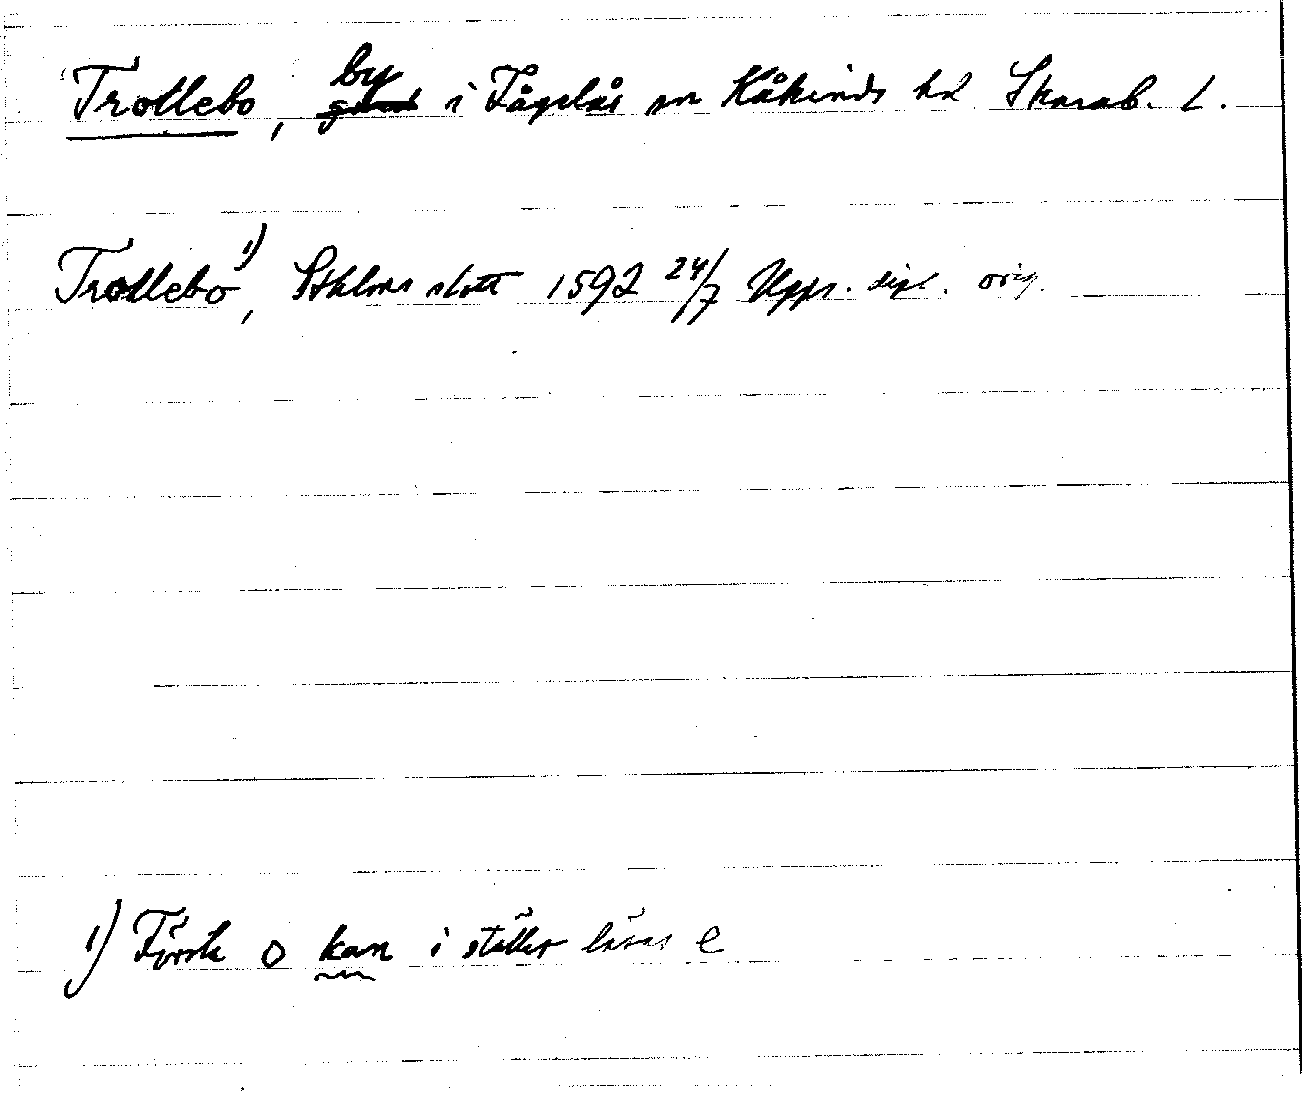 Trollebo, by gård i Fågelås sn Kåkinds hd Skarab. l.
Trollebo 1), Sthlms slott 1592 24/7 Upps. dipl. orig.
1) Förste o kan i stället läsas e